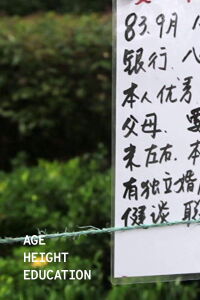 83.9月
银行.八
本人优秀
父母.要
未左右.本
有独立婚
健谈.联
AGE
HEIGHT
EDUCATION